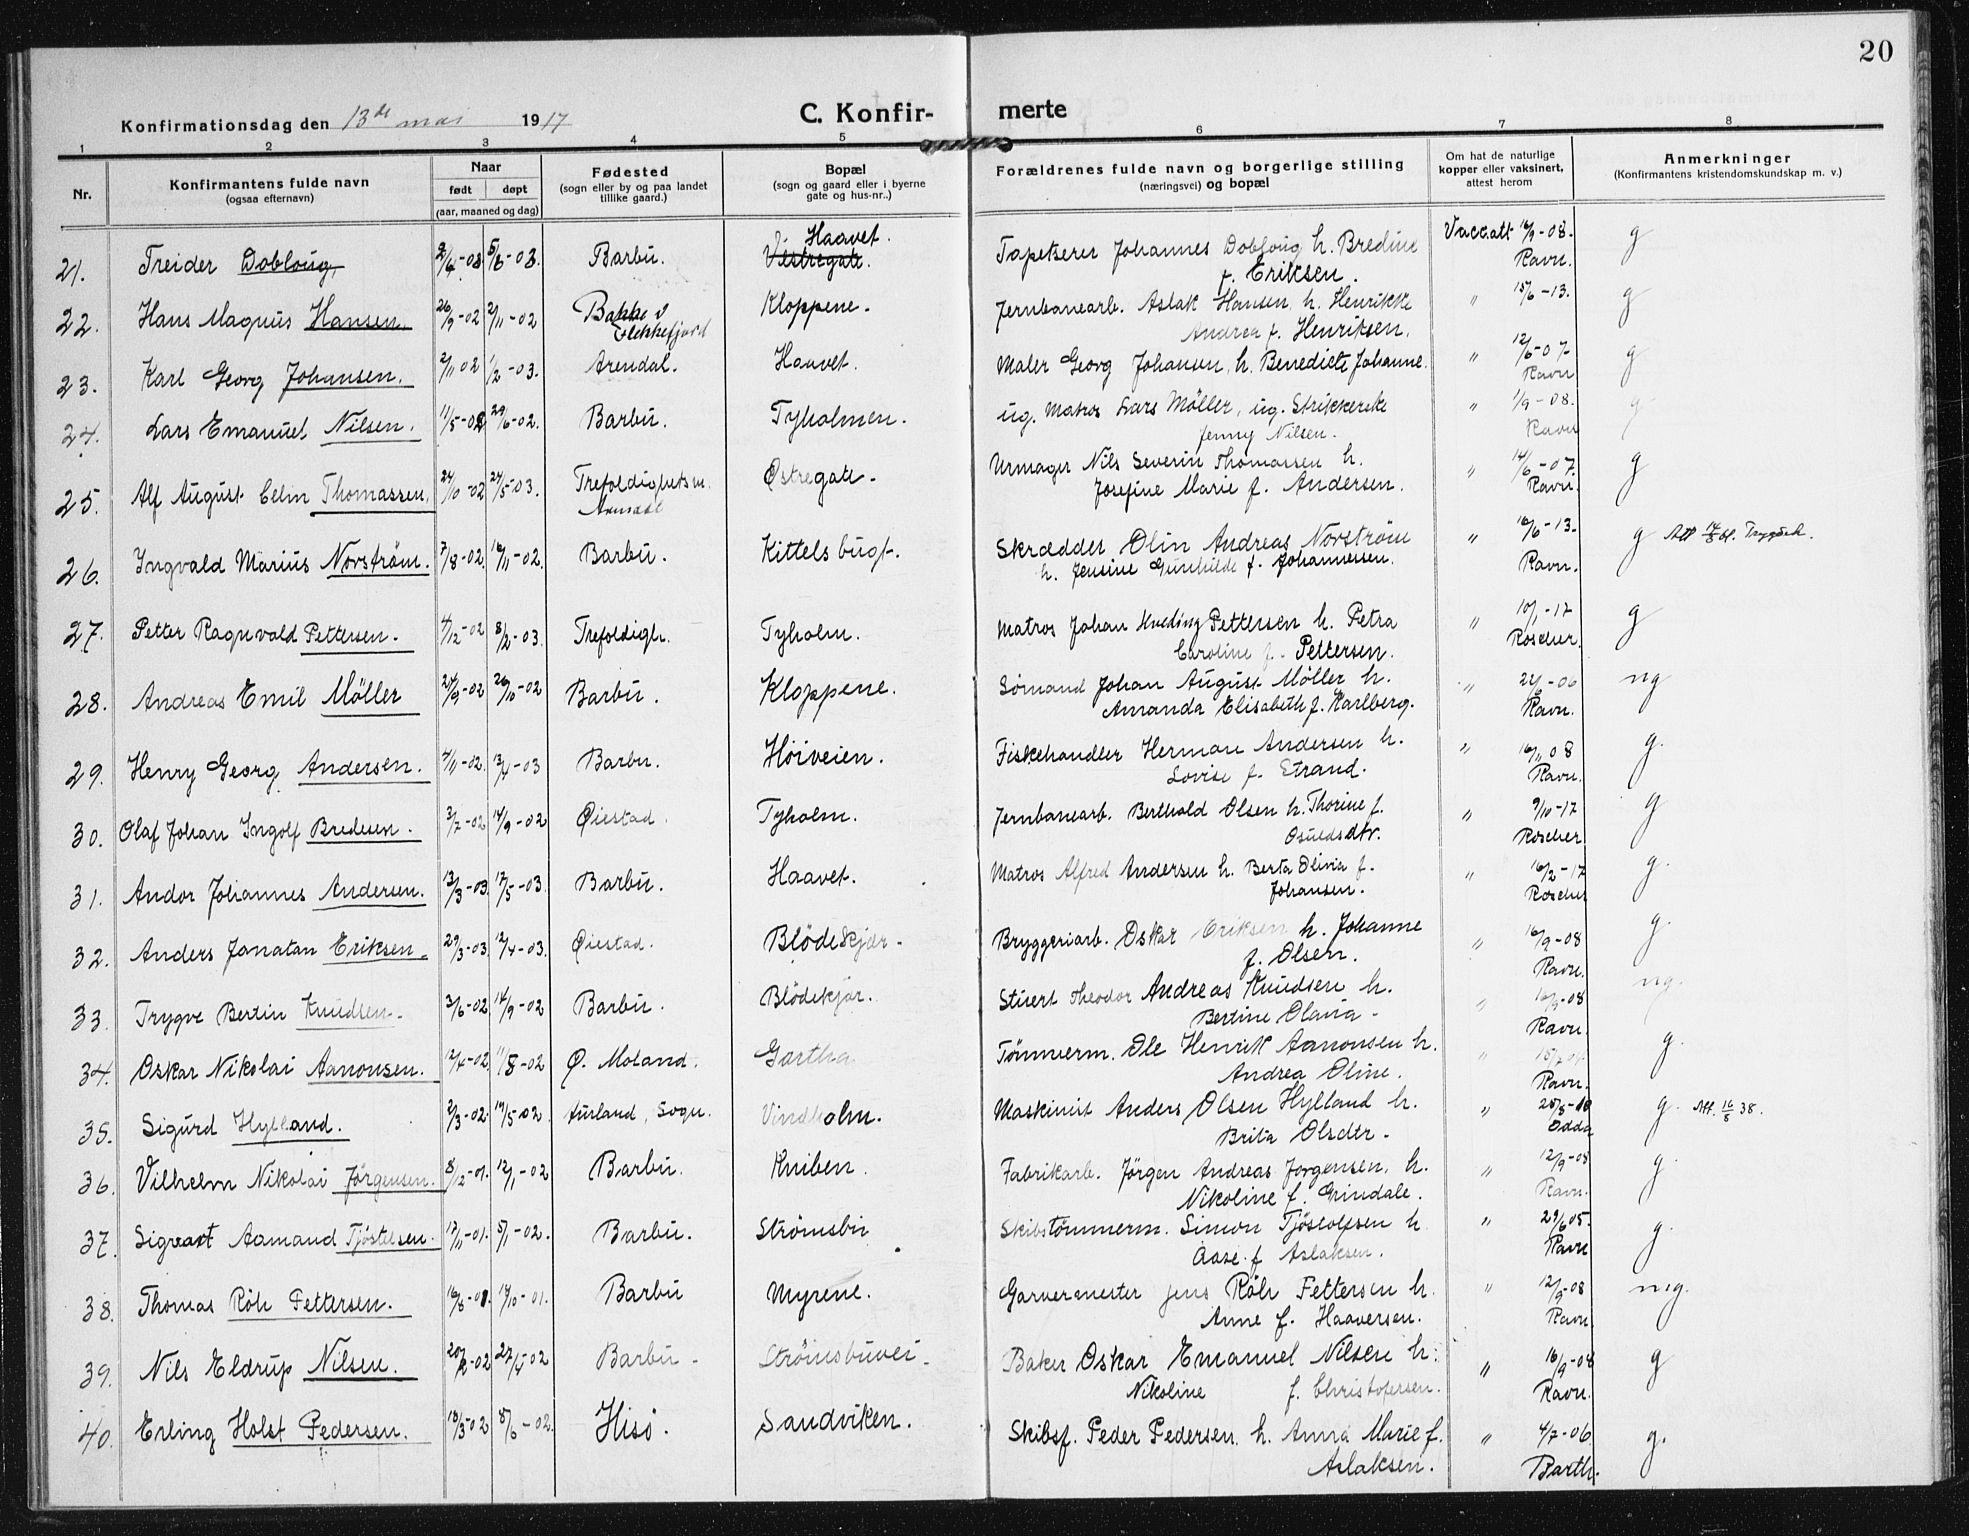 20
Konfirmationsdag den 13de mai 1917
C. Konfir- merte
1 2 3 4 5 6 7 8
Nr. | Konfirmantens fulde navn (ogsaa efternavn) | Naar født døpt (aar, maaned og dag) | Fødested (sogn eller by og paa landet tillike gaard.) | Bopæl (sogn og gaard eller i byerne gate og hus-nr..) | Forældrenes fulde navn og borgerlige stilling (næringsvei) og bopæl | Om hat de naturlige kopper eller vaksinert, attest herom | Anmerkninger (Konfirmantens kristendomskundskap m. v.)
Haavet.
21. Treider Dobloug, 2/4-03 5/6-03. Barbu. Vestregate. Tapetserer Johannes Dobloug h. Bredine Vacc.att 16/9-08. g
f. Eriksen. Ravn.
22. Hans Magnus Hansen. 26/9-02 2/11-02 Bakke v Kloppene. Jernbanearb. Aslak Hansen, h. Henrikke " 15/6-13. g
Flekkefjord Andrea f. Henriksen.
23. Karl Georg Johansen. 2/11 02 1/2-03. Arendal. Haavet. Maler Georg Johansen, h. Benedicte Johanne. " 12/6-07 g
Ravn
24. Lars Emanuel Nilsen. 11/5-02 29/6-02. Barbu. Tyholmen. ug. Matros Lars Möller, ug. Strikkerske " 1/9-08. g
Jenny Nilsen. Ravn
25. Alf August Celin Thomassen. 24/10-02 24/5-03. Trefoldighetsm. Østregate. Urmager Nils Severin Thomassen h. " 14/6-07. g
Arendal Josefine Marie f. Andersen. Ravn.
26. Ingvald Marius Norström. 7/8-02. 16/11-02. Barbu. Kittelsbugt. Skrædder Olin Andreas Norström " 16/6-13. g Att 14/8 bl. Trygdek.
h. Jensine Gunhilde f. Johannessen. Ravn.
27. Petter Ragnvald Pettersen. 4/12-02 8/2-03. Trefoldigh. Tyholm. Matros Johan Pettersen h. Petra " 10/1-17 g
Caroline f. Pettersen. Roscher.
28. Andreas Emil Möller 20/9-02 26/10-02 Barbu. Kloppene. Sømand Johan August Möller h. " 22/6-06 ng
Amanda Elisabeth f. Karlberg. Ravn.
29. Henry Georg Andersen. 4/11-02. 13/4-03 Barbu. Höiveien. Fiskehandler Herman Andersen h. " 16/11 08 g.
Lovise f. Strand. Ravn.
30. Olaf Johan Ingolf Bredesen. 3/7-02 14/9-02 Øiestad. Tyholm. Jernbanearb. Berthold Olsen h. Thorine f. " 9/10-17 g
Osuldsdtr. Roscher
31. Andor Johannes Andersen. 13/3-03. 17/5-03. Barbu. Haavet. Matros Alfred Andersen h. Berta Olivia f. " 16/2-17 g.
Johansen. Roscher
32. Anders Jonatan Eriksen. 29/3-03. 12/4-03. Øiestad. Blödekjær. Bryggeriarb. Oskar Eriksen h. Johanne " 16/9-08 g.
f. Olsen. Ravn.
33. Trygve Bertin Knudsen. 3/6-02 14/9-02 Barbu. Blödekjær. Stuert Theodor Andreas Knudsen h. " 16/9-08 ng.
Bertine Olavia. Ravn.
34. Oskar Nikolai Aanonsen. 12/4-02. 11/8-02 Ø. Moland. Gartha Tömmerm. Ole Henrik Aanonsen h. " g.
Andrea Oline. Ravn.
35. Sigurd Hylland. 2/3-02. 19/5-02. Aurland, Sogn. Vindholm. Maskinist Anders Olsen Hylland h. " 25/8-10 g. Att. 16/8 38.
Brita Olsdtr. Odda
36. Vilhelm Nikolai Jørgensen. 8/12-01. 12/1-02 Barbu. Kniben. Fabrikarb. Jørgen Andreas Jørgensen, h. " 12/9-08 g.
Nikoline f. Grindale. Ravn.
37. Sigvart Aamand Tjöstelsen. 17/11-01. 5/1-02. Barbu. Strömsbu Skibstömmerm. Simon Tjöstolfsen h " 29/6 05. g.
Aase f Aslaksen. Ravn
38. Thomas Röh Pettersen. 16/8-01. 14/10-01. Barbu Myrene. Garvermester Jens Röh Pettersen h. " 12/9-08 meg.
Anne f. Haaversen. Ravn
39. Nils Eldrup Nilsen. 20/2-02 27/4-02 Barbu. Strömsbuvei. Baker Oskar Emanuel Nilsen h. " 16/9-08 g
Nikoline f. Christofersen. Ravn.
40. Erling Holst Pedersen. 18/3-02 8/6-02. Hisö. Sandviken. Skibsf. Peder Pedersen h. Anna Marie f. " 4/7-06 g.
Aslaksen. Barth.